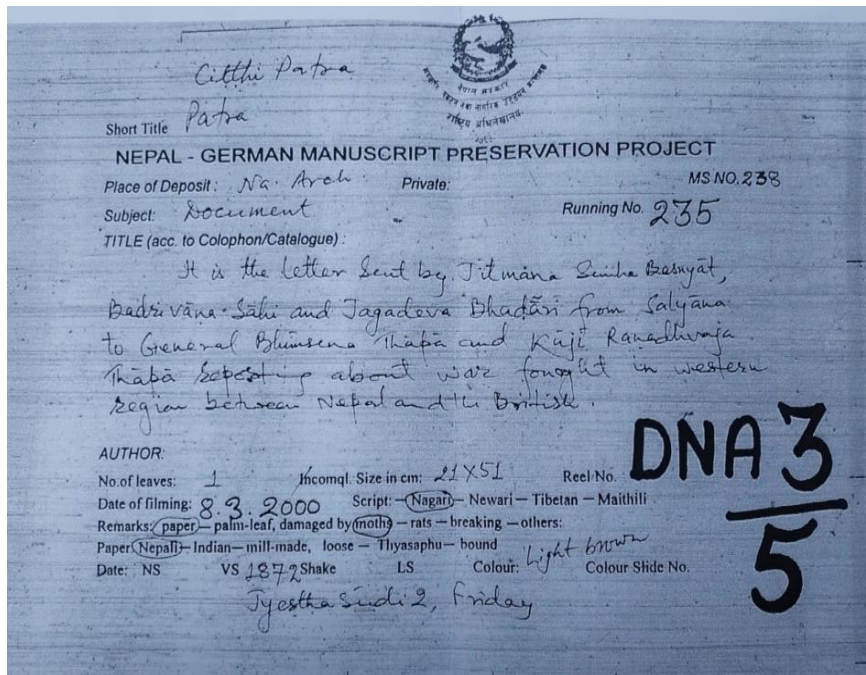 Citthi Patra
नेपाल सरकार
राष्ट्रिय अभिलेखालय
Short Title Patra
NEPAL - GERMAN MANUSCRIPT PRESERVATION PROJECT
Place of Deposit : Na. Arch. Private: MS NO. 238
Subject: Document Running No. 235
TITLE (acc. to Colophon/Catalogue) :
It is the letter sent by Jitmāna Sinha Basnyāt,
Badrivāna Sāhi and Jagadeva Bhadāri from Salyāna
to General Bhimsena Thāpā and Kājī Ranadhvaja
Thāpā reporting about war fought in western
region between Nepal and the British.
AUTHOR:
No.of leaves: 1 Incomql. Size in cm: 21X51 Reel No. DNA 3/5
Date of filming: 8.3.2000 Script: – Nagari – Newari – Tibetan – Maithili
Remarks: paper – palm-leaf, damaged by moths – rats – breaking – others:
Paper Nepali – Indian – mill-made, loose – Thyasaphu – bound
Date: NS VS 1872 Shake LS Colour: Light brown Colour Slide No.
Jyestha Sudi 2, Friday